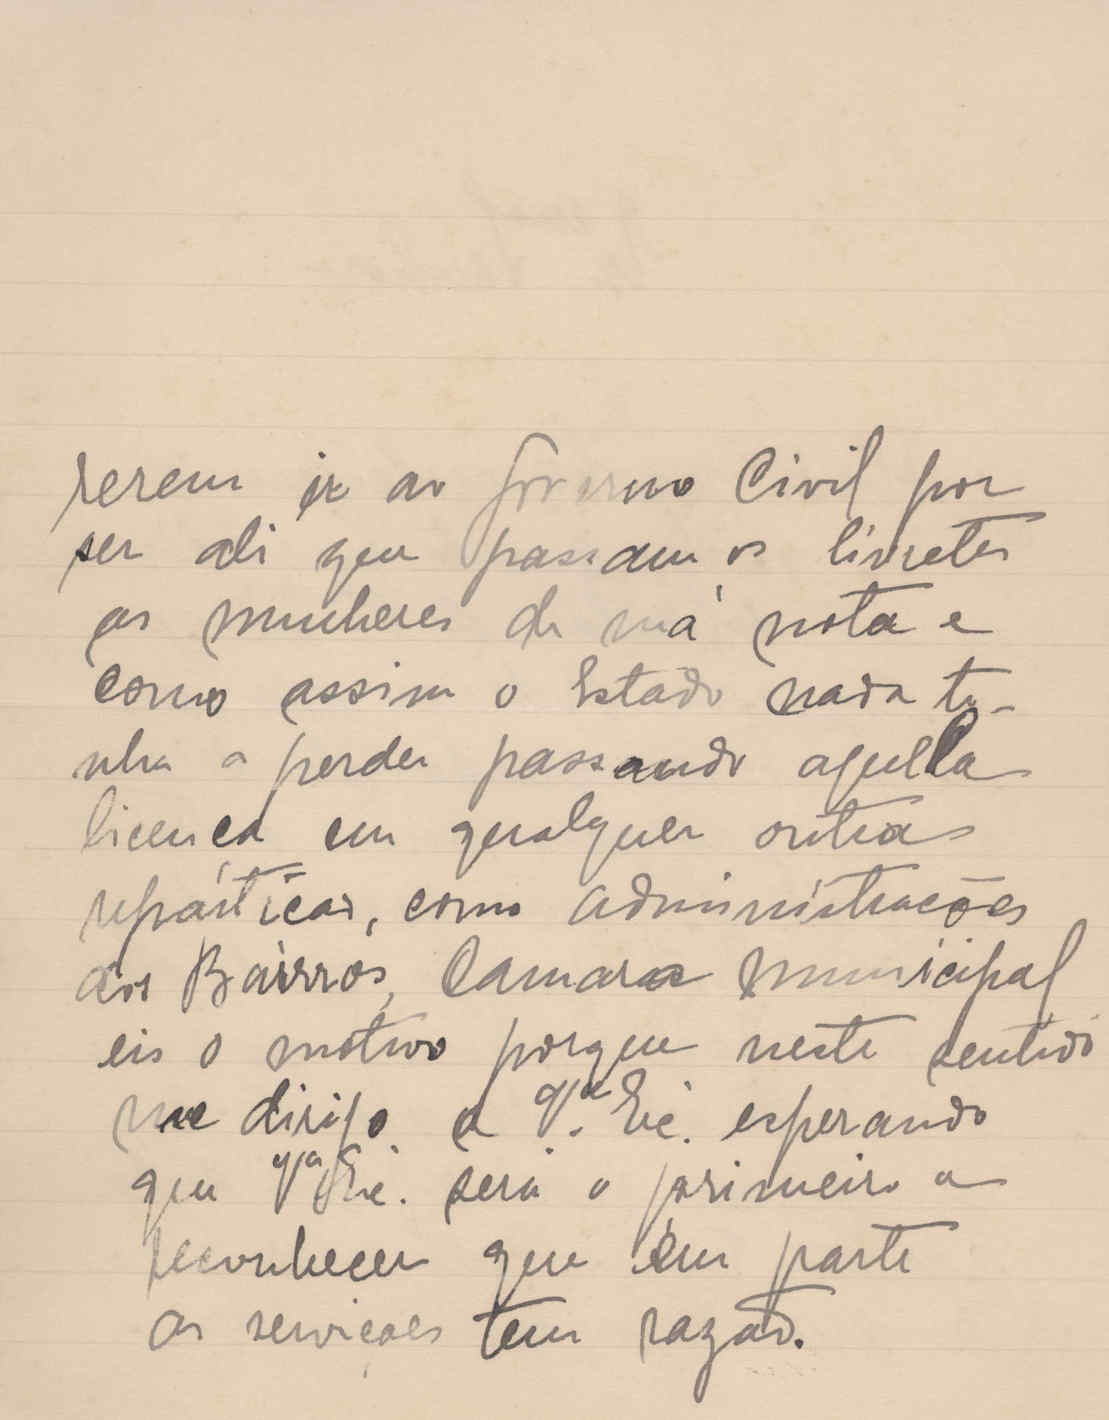 rerem ir ao Governo Civil por
ser ali que passam os livretes
as mulheres de má nota e
como assim o Estado nada ti-
nha a perder passando aquella
licença em qualquer outras
repárticas, como administracões
dos Bairros, Camara municipal
eis o motivo porque neste sentido
me dirijo a Vª. Exc. esperando
que Vª Exc. será o primeiro a
reconhecer que em parte
as serviçaes tem razaõ.